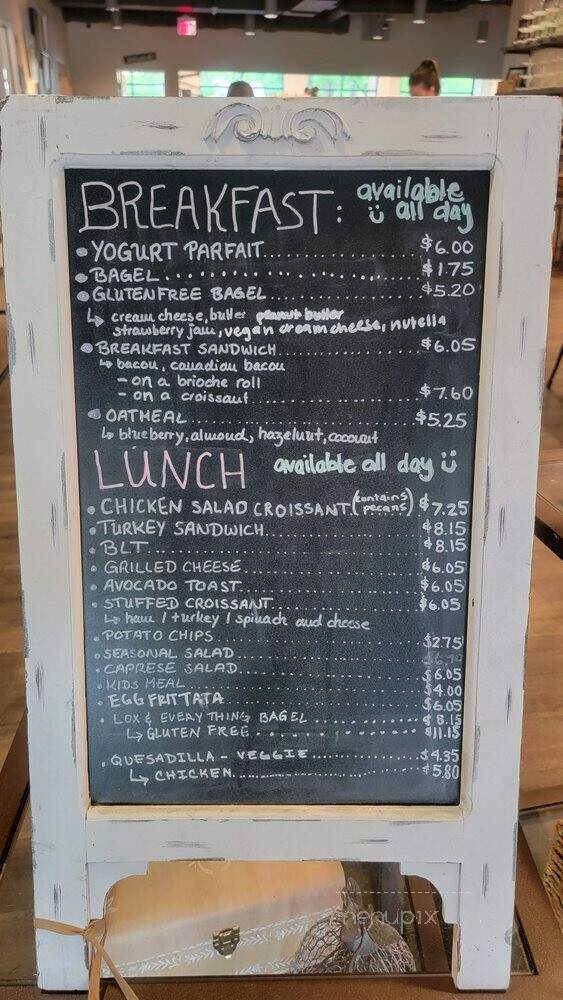 BREAKFAST: available
all day
• YOGURT PARFAIT.................... $6.00
• BAGEL.................... $1.75
• GLUTENFREE BAGEL.................... $5.20
↳ cream cheese, butter peanut butter
strawberry jam, vegan cream cheese, nutella
• BREAKFAST SANDWICH.................... $6.05
↳ bacon, canadian bacon
- on a brioche roll
- on a croissant.................... $7.60
• OATMEAL.................... $5.25
↳ blueberry, almond, hazelnut, coconut
LUNCH available all day
• CHICKEN SALAD CROISSANT (contains pecans) $7.25
• TURKEY SANDWICH.................... $8.15
• BLT.................... $8.15
• GRILLED CHEESE.................... $6.05
• AVOCADO TOAST.................... $6.05
• STUFFED CROISSANT.................... $6.05
↳ ham / turkey / spinach and cheese
• POTATO CHIPS.................... $2.75
• SEASONAL SALAD....................
• CAPRESE SALAD.................... $6.05
• KIDS MEAL.................... $4.00
• EGG FRITTATA.................... $6.05
• LOX & EVERYTHING BAGEL.................... $8.15
↳ GLUTEN FREE.................... $11.15
• QUESADILLA - VEGGIE.................... $4.35
↳ CHICKEN.................... $5.80
menupix